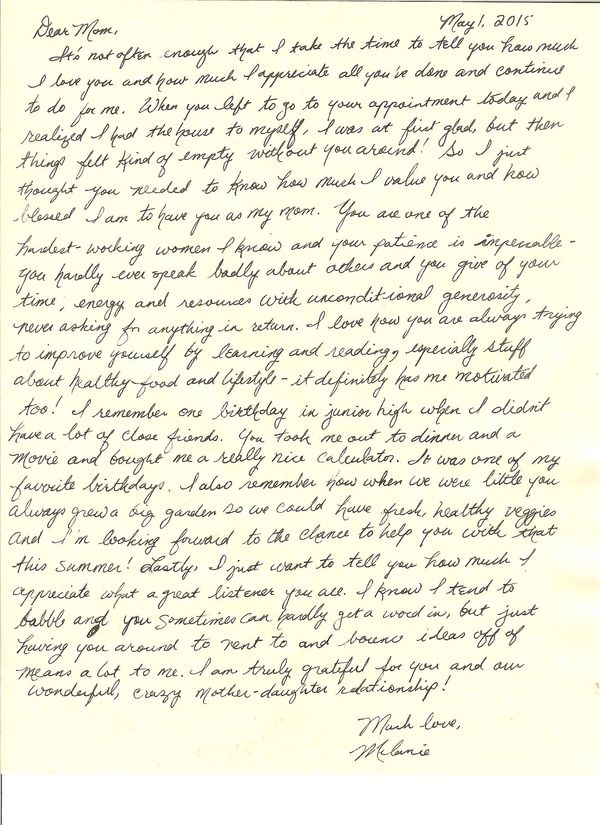 May 1, 2015
Dear Mom,
It's not often enough that I take the time to tell you how much
I love you and how much I appreciate all you've done and continue
to do for me. When you left to go to your appointment today and I
realized I had the house to myself, I was at first glad, but then
things felt kind of empty without you around! So I just
thought you needed to know how much I value you and how
blessed I am to have you as my mom. You are one of the
hardest-working women I know and your patience is impeccable-
you hardly ever speak badly about others and you give of your
time, energy and resources with unconditional generosity,
never asking for anything in return. I love how you are always trying
to improve yourself by learning and reading, especially stuff
about healthy food and lifestyle - it definitely has me motivated
too! I remember one birthday in junior high when I didn't
have a lot of close friends. You took me out to dinner and a
movie and bought me a really nice calculator. It was one of my
favorite birthdays. I also remember how when we were little you
always grew a big garden so we could have fresh, healthy veggies
and I'm looking forward to the chance to help you with that
this summer! Lastly, I just want to tell you how much I
appreciate what a great listener you are. I know I tend to
babble and you sometimes can hardly get a word in, but just
having you around to vent to and bounce ideas off of
means a lot to me. I am truly grateful for you and our
wonderful, crazy mother-daughter relationship!
Much love,
Melanie